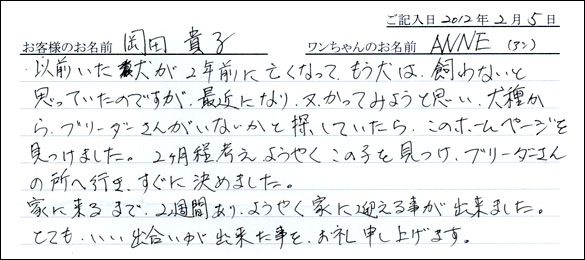 ご記入日 2012年 2月 5日
お客様のお名前 岡田 貴子 ワンちゃんのお名前 ANNE (アン)
・以前いた犬が2年前に亡くなって、もう犬は、飼わないと
思っていたのですが、最近になり、又、かってみようと思い、犬種か
ら、ブリーダーさんがいないかと探していたら、このホームページを
見つけました。2ヶ月程考え、ようやくこの子を見つけ、ブリーダーさん
の所へ行き、すぐに決めました。
家に来るまで、2週間あり、ようやく家に迎える事が出来ました。
とても、いい出合いが出来た事を、お礼申し上げます。